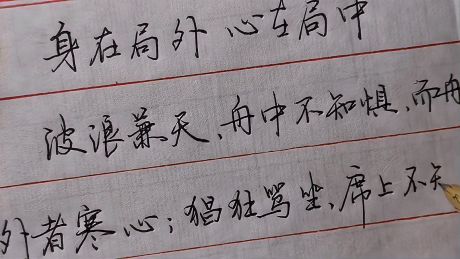 身在局外 心在局中
波浪兼天、舟中不知惧、而舟
外者寒心；猖狂骂坐、席上不知